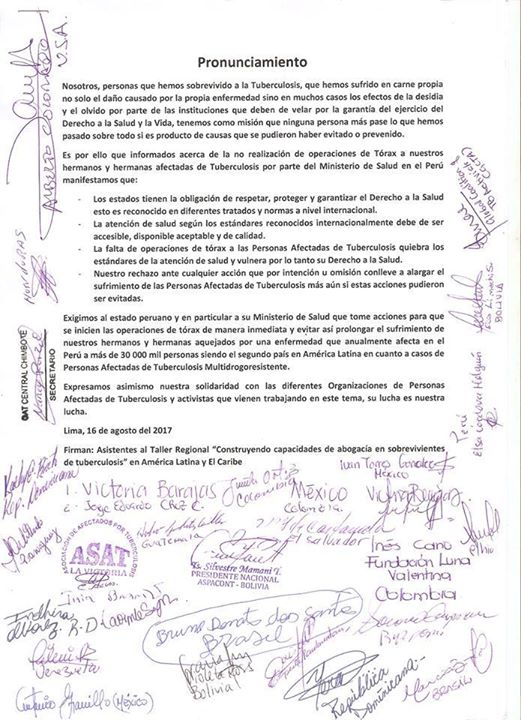 Pronunciamiento
Nosotros, personas que hemos sobrevivido a la Tuberculosis, que hemos sufrido en carne propia
no solo el daño causado por la propia enfermedad sino en muchos casos los efectos de la desidia
y el olvido por parte de las instituciones que deben de velar por la garantía del ejercicio del
Derecho a la Salud y la Vida, tenemos como misión que ninguna persona más pase lo que hemos
pasado sobre todo si es producto de causas que se pudieron haber evitado o prevenido.
Es por ello que informados acerca de la no realización de operaciones de Tórax a nuestros
hermanos y hermanas afectadas de Tuberculosis por parte del Ministerio de Salud en el Perú
manifestamos que:
- Los estados tienen la obligación de respetar, proteger y garantizar el Derecho a la Salud
esto es reconocido en diferentes tratados y normas a nivel internacional.
- La atención de salud según los estándares reconocidos internacionalmente debe de ser
accesible, disponible aceptable y de calidad.
- La falta de operaciones de tórax a las Personas Afectadas de Tuberculosis quiebra los
estándares de la atención de salud y vulnera por lo tanto su Derecho a la Salud.
- Nuestro rechazo ante cualquier acción que por intención u omisión conlleve a alargar el
sufrimiento de las Personas Afectadas de Tuberculosis más aún si estas acciones pudieron
ser evitadas.
Exigimos al estado peruano y en particular a su Ministerio de Salud que tome acciones para que
se inicien las operaciones de tórax de manera inmediata y evitar así prolongar el sufrimiento de
nuestros hermanos y hermanas aquejados por una enfermedad que anualmente afecta en el
Perú a más de 30 000 mil personas siendo el segundo país en América Latina en cuanto a casos de
Personas Afectadas de Tuberculosis Multidrogoresistente.
Expresamos asimismo nuestra solidaridad con las diferentes Organizaciones de Personas
Afectadas de Tuberculosis y activistas que vienen trabajando en este tema, su lucha es nuestra
lucha.
Lima, 16 de agosto del 2017
Firman: Asistentes al Taller Regional "Construyendo capacidades de abogacía en sobrevivientes
de tuberculosis" en América Latina y El Caribe
ALBERTO COLORADO
U.S.A.
HONDURAS
OAT CENTRAL CHIMBOTE
SECRETARIO
BOLIVIA
Perú
Elsa Cordova Holguín
México
1. Victoria Barajas
MÉXICO
Colombia
2. Jorge Eduardo Cruz C.
Colombia
Guatemala
El Salvador
ASOCIACIÓN DE AFECTADOS POR TUBERCULOSIS
ASAT
LA VICTORIA
Silvestre Mamani T.
PRESIDENTE NACIONAL
ASPACONT - BOLIVIA
Inés Cano
Fundación Luna
Valentina
Colombia
R.D
Bruno Donato dos Santos
Brasil
Venezuela
Violeta Ross
Bolivia
(México)
República
Dominicana
BRASIL